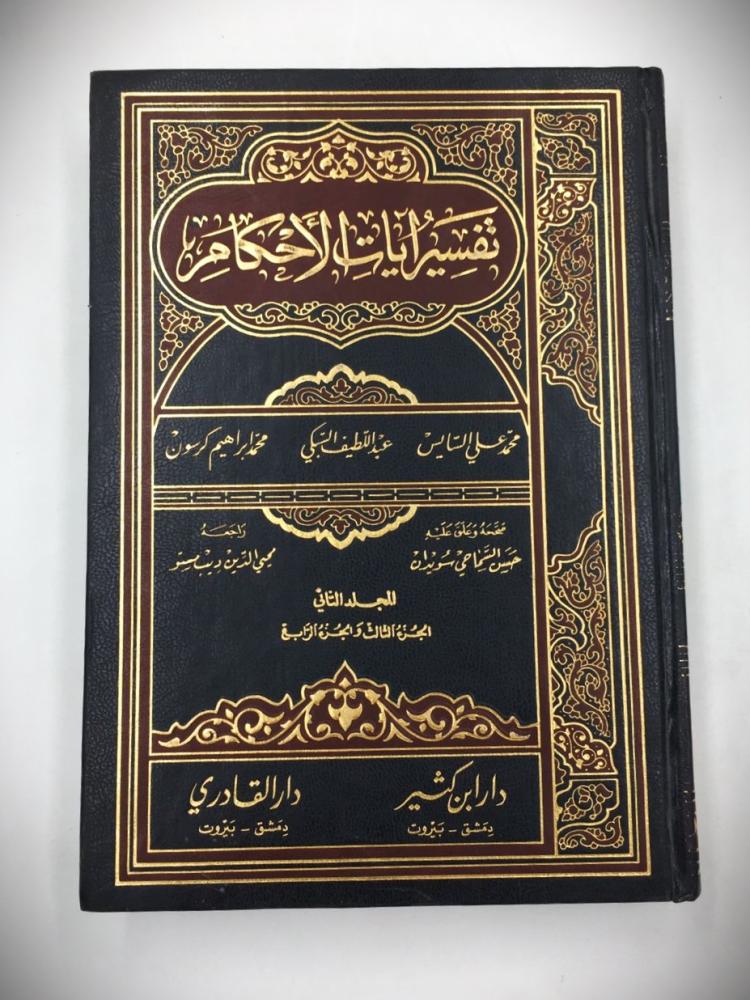 تفسير آيات الأحكام
محمد علي السايس عبد اللطيف السبكي محمد إبراهيم كرسون
صححه وعلق عليه راجعه
حسن السماحي سويدان محيي الدين ديب مستو
المجلد الثاني
الجزء الثالث والجزء الرابع
دار ابن كثير دار القادري
دمشق - بيروت دمشق - بيروت